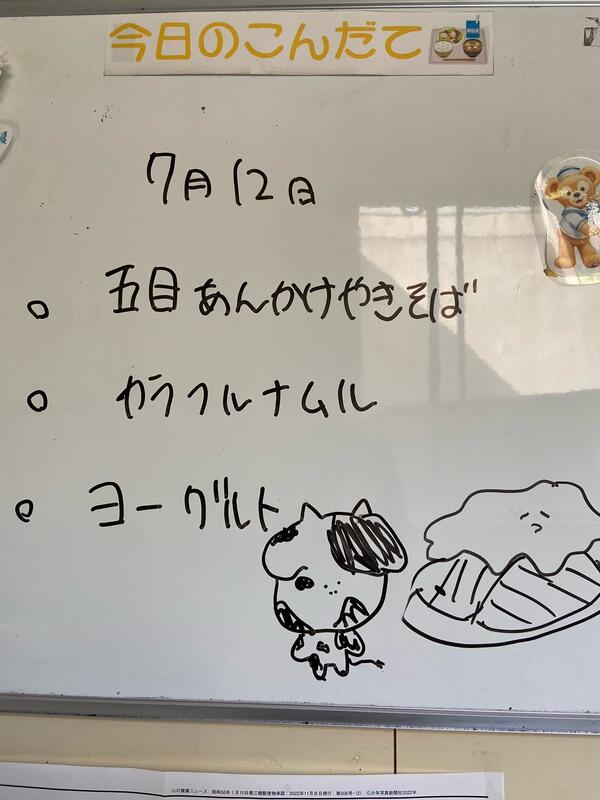 今日のこんだて
MILK
7月12日
○ 五目あんかけやきそば
○ カラフルナムル
○ ヨーグルト
心の健康ニュース 昭和56年1月10日第三種郵便物承認 2022年11月8日発行 第506号-(2) ©少年写真新聞社2022年